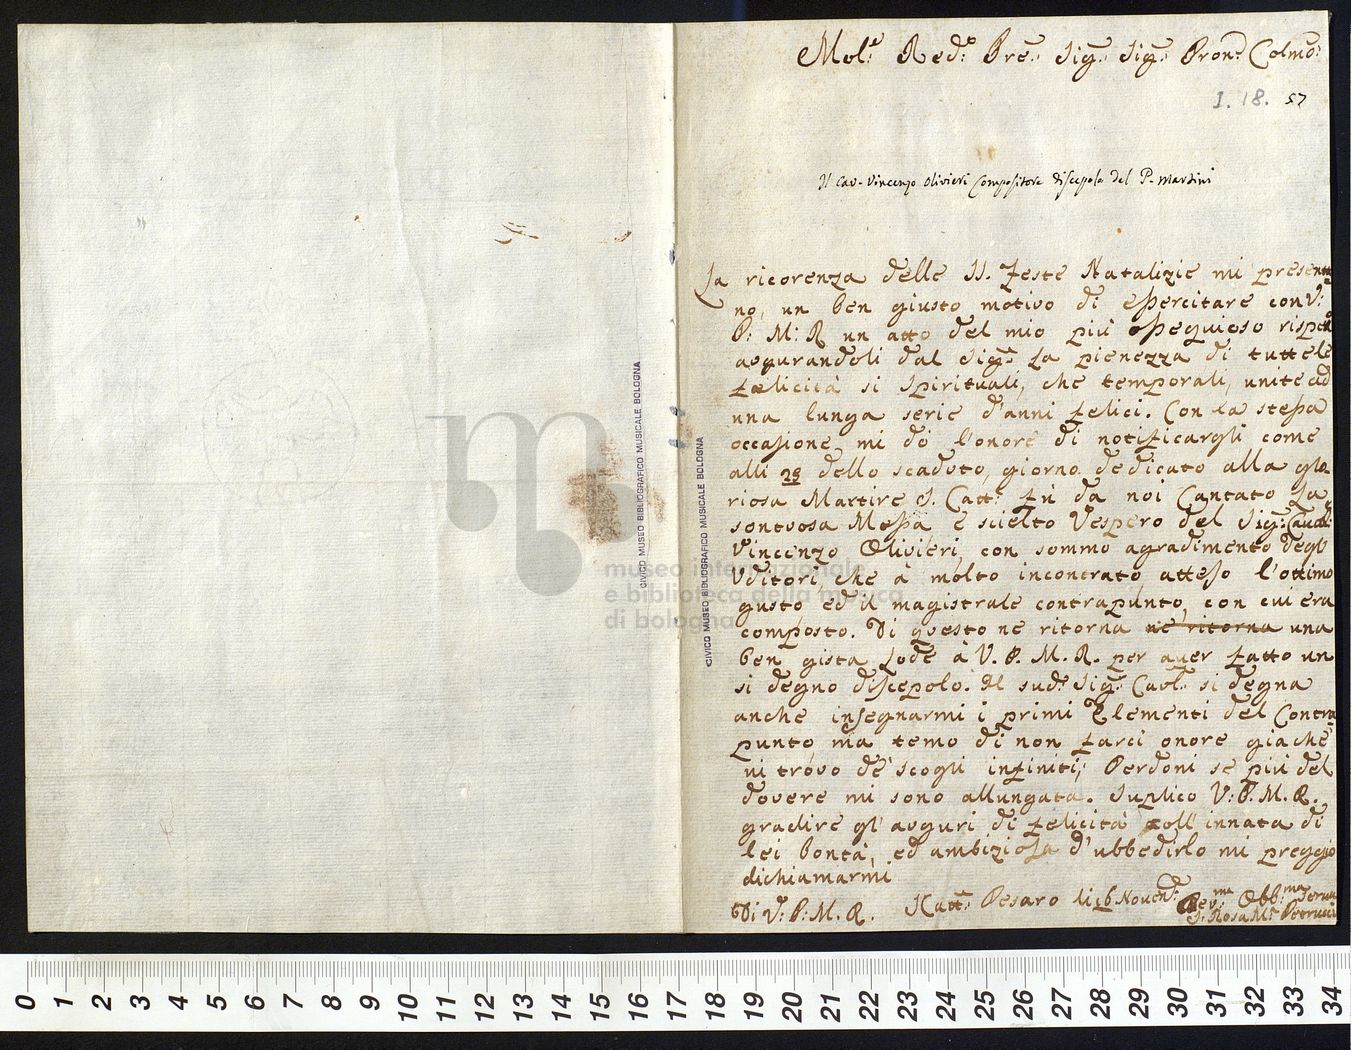 Mol.e Red.o Pre: Sig.r Sig.r Pron. Colmo:
I. 18. 57
Il Cav. Vincenzo Olivieri Compositore discepolo del P. Martini
La ricorenza delle SS. Feste Natalizie mi presenta=
no, un ben giusto motivo di essercitare con V:
P: M: R un atto del mio più ossequioso rispetto
augurandoli dal Sig.e la pienezza di tutte le
felicità si spirituali, che temporali, unite ad
una lunga serie d'anni felici. Con la stessa
occasione mi dò l'onore di notificargli come
alli 25 dello scaduto, giorno dedicato alla glo=
riosa Martire S. Catt.a fù da noi Cantato la
sontuosa Messa e scielto Vespero del Sig: Caval:
Vincenzo Olivieri, con sommo agradimento degl'
Uditori, che à molto incontrato atteso l'ottimo
gusto ed il magistrale contrapunto, con cui era
composto. Di questo ne ritorna ne ritorna una
ben gista lode à V. P. M. R. per auer fatto un
si degno discepolo. Il sud.o Sig.r Cavl.e si degna
anche insegnarmi i primi Elementi del Contra=
punto, ma temo di non farci onore giachè
vi trovo de' scogli infiniti; Perdoni se più del
dovere mi sono allungata. Suplico V: P. M. R.
gradire gl'auguri di felicità coll'innata di
lei bontà, ed ambiziosa d'ubbedirlo mi preggio
dichiarmi
Di V: P: M. R. S Catt.a Pesaro li 16 Novem. Dev.ma Obb.ma Serva
S: Rosa M.a Petrucci
CIVICO MUSEO BIBLIOGRAFICO MUSICALE BOLOGNA
CIVICO MUSEO BIBLIOGRAFICO MUSICALE BOLOGNA
museo internazionale
e biblioteca della musica
di bologna
0 1 2 3 4 5 6 7 8 9 10 11 12 13 14 15 16 17 18 19 20 21 22 23 24 25 26 27 28 29 30 31 32 33 34